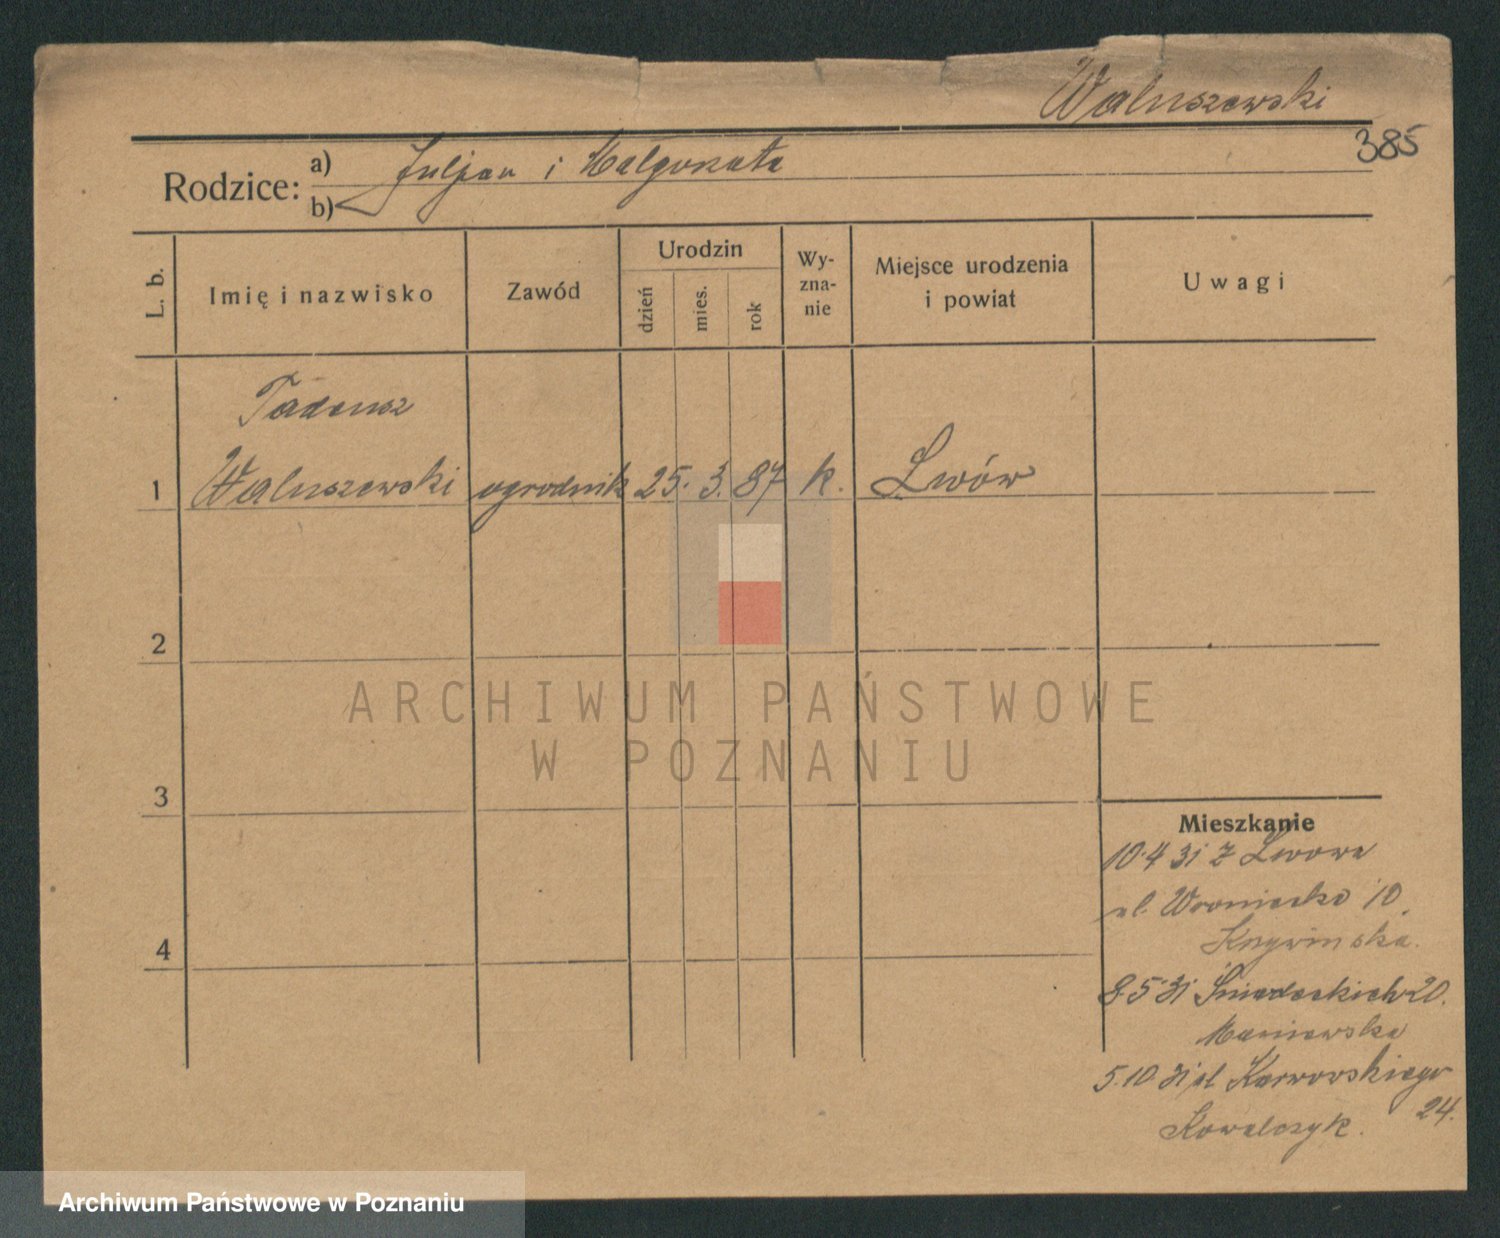 Waluszewski
385
Rodzice: a) Juljan i Małgorzata
b)
L. b. Imię i nazwisko Zawód Urodzin dzień mies. rok Wy-zna-nie Miejsce urodzenia i powiat Uwagi
Tadeusz
1 Waluszewski ogrodnik 25. 3. 87 k. Lwów
2
ARCHIWUM PAŃSTWOWE
W POZNANIU
3
Mieszkanie
10.4 31 z Lwowa
ul. Wroniecka 10
4
8.5 31 Śniadeckich 20.
5.10.31 ul Karwowskiego
24.
Kowalczyk.
Archiwum Państwowe w Poznaniu